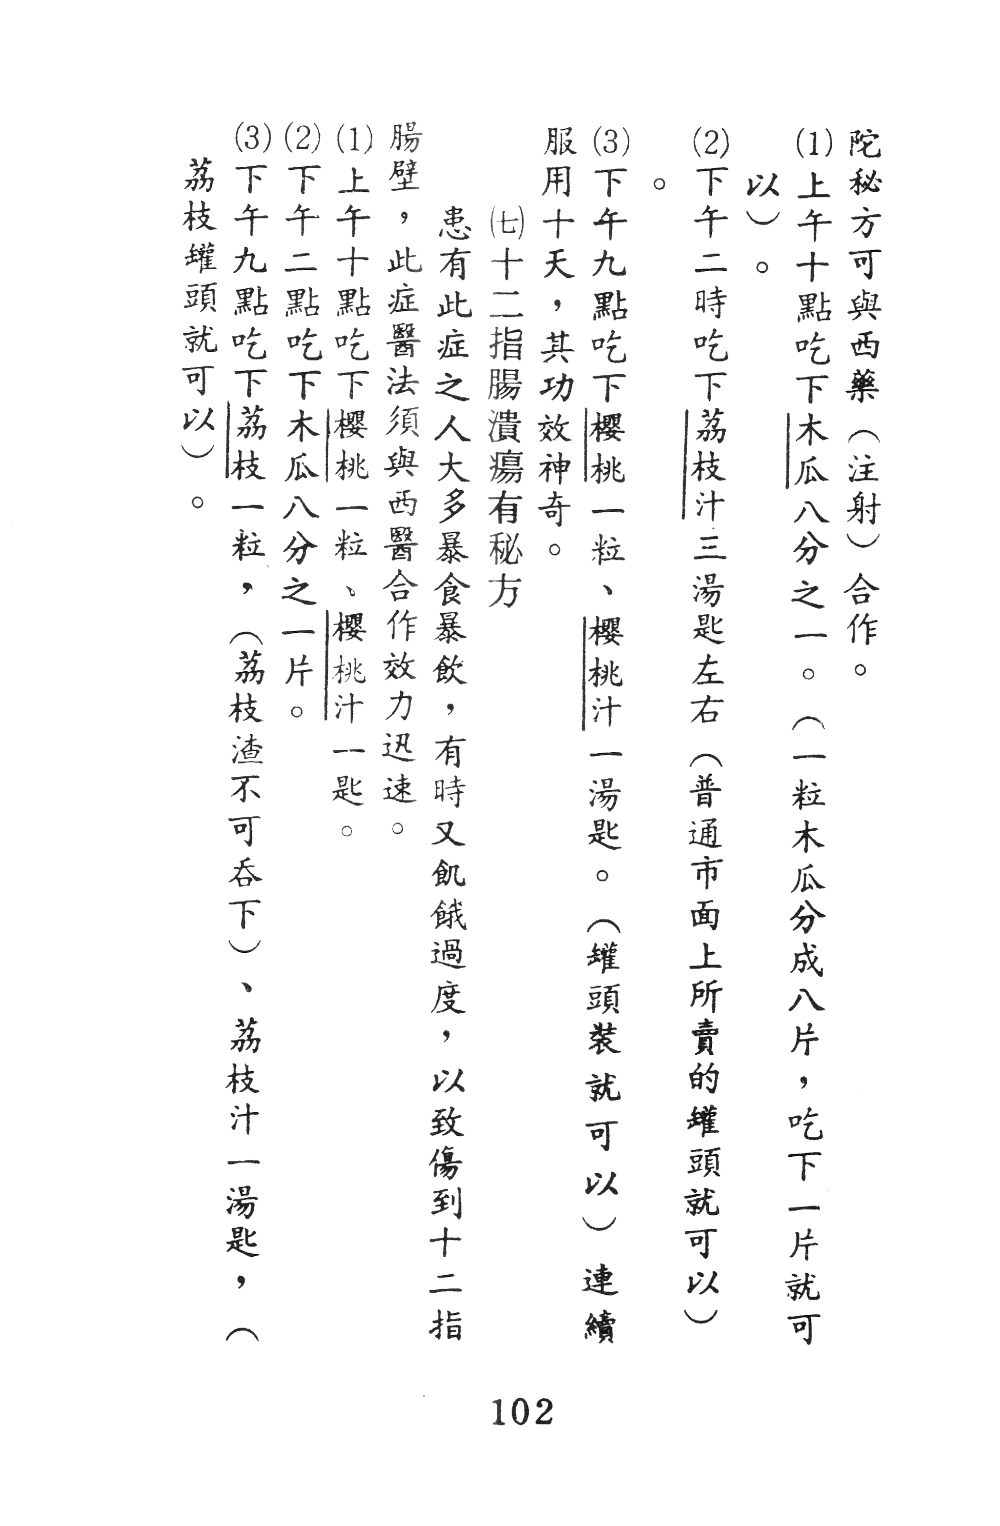 陀秘方可與西藥（注射）合作。
(1)上午十點吃下木瓜八分之一。（一粒木瓜分成八片，吃下一片就可
以）。
(2)下午二時吃下荔枝汁三湯匙左右（普通市面上所賣的罐頭就可以）
。
(3)下午九點吃下櫻桃一粒、櫻桃汁一湯匙。（罐頭裝就可以）連續
服用十天，其功效神奇。
㈦十二指腸潰瘍有秘方
患有此症之人大多暴食暴飲，有時又飢餓過度，以致傷到十二指
腸壁，此症醫法須與西醫合作效力迅速。
(1)上午十點吃下櫻桃一粒、櫻桃汁一匙。
(2)下午二點吃下木瓜八分之一片。
(3)下午九點吃下荔枝一粒，（荔枝渣不可吞下）、荔枝汁一湯匙，（
荔枝罐頭就可以）。
102